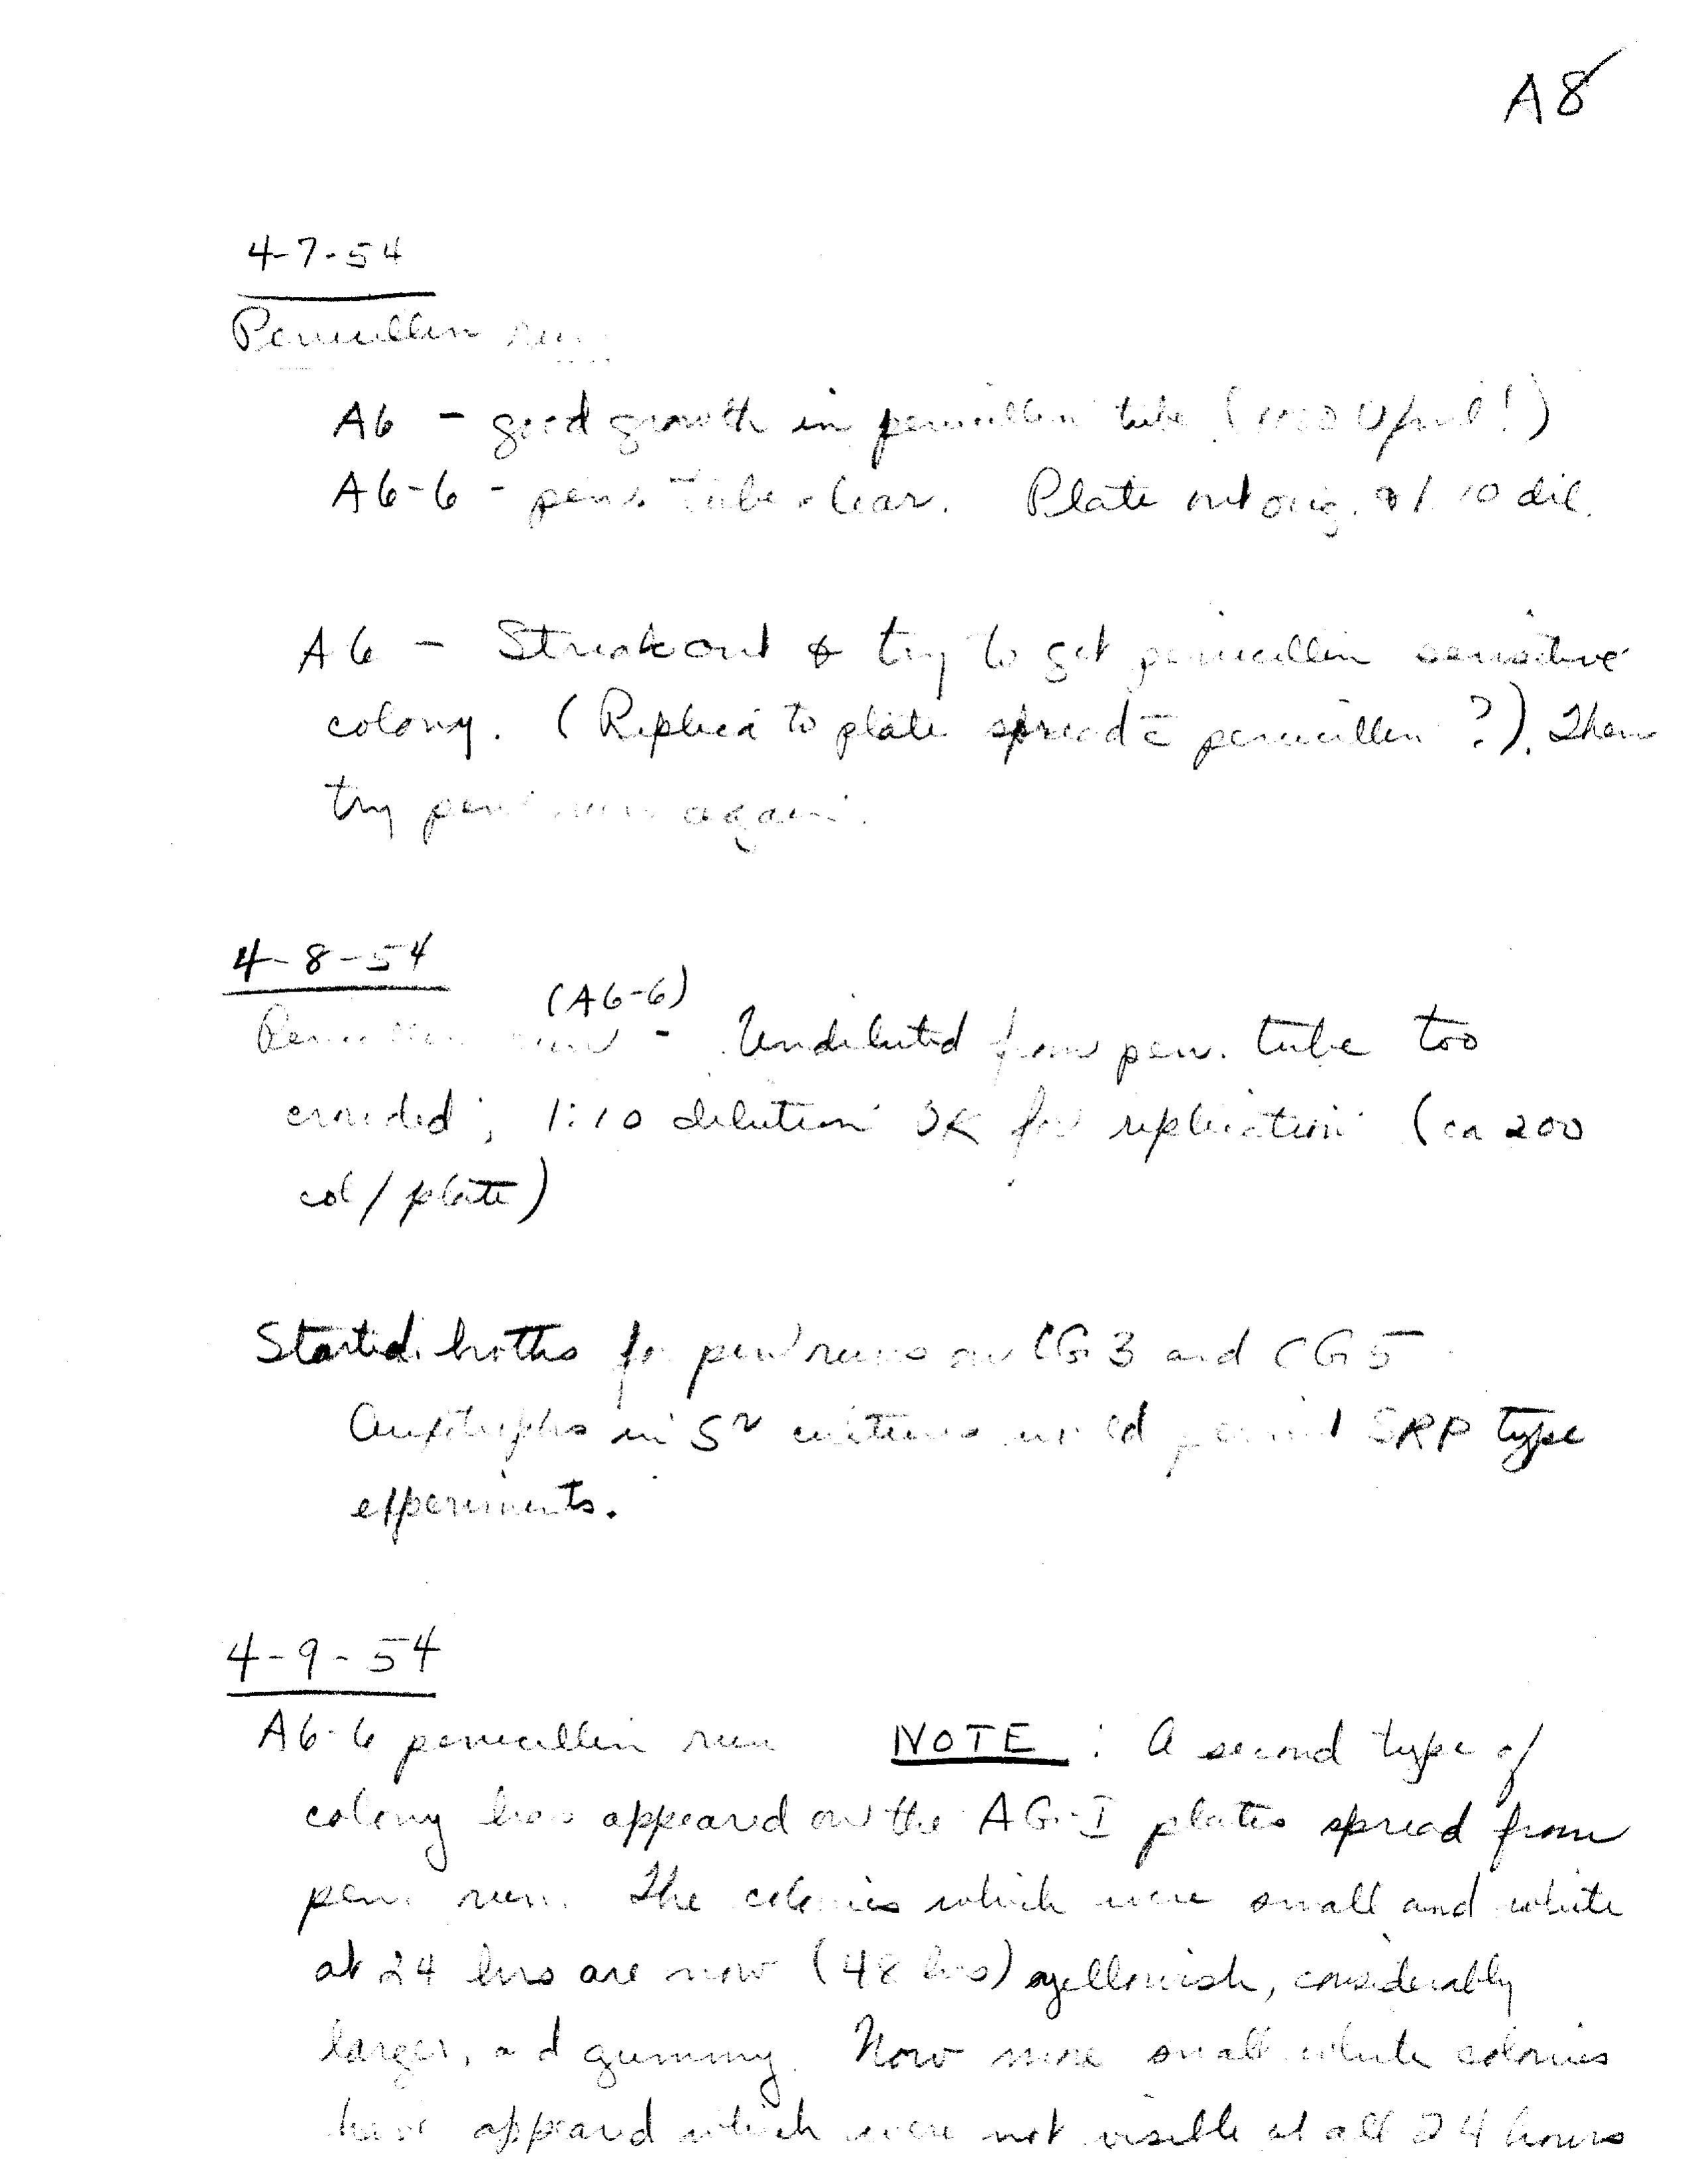 A8
4-7-54
Penicillin run
A6 - good growth in penicillin tube (1000 U/ml!)
A6-6 - pen. tube clear. Plate out orig. & 1:10 dil.
A6 - Streak out & try to get penicillin sensitive
colony. (Replica to plate spread c̄ penicillin ?). Then
try pen run again.
4-8-54
(A6-6)
Penicillin run - Undiluted from pen. tube too
crowded; 1:10 dilution OK for replication (ca 200
col/plate)
Started broths for pen runs on CG3 and CG5
Auxotrophs in Sr cultures would permit SRP type
experiments.
4-9-54
A6-6 penicillin run NOTE : A second type of
colony has appeared on the AG-I plates spread from
pen. run. The colonies which were small and white
at 24 hrs are now (48 hrs) yellowish, considerably
larger, and gummy. Now more small white colonies
have appeared which were not visible at all 24 hours